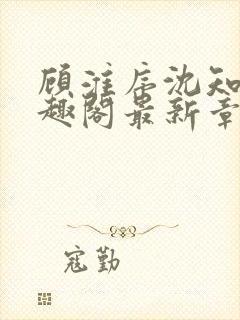 顾淮辰沈知
趣阁最新章
寇勤